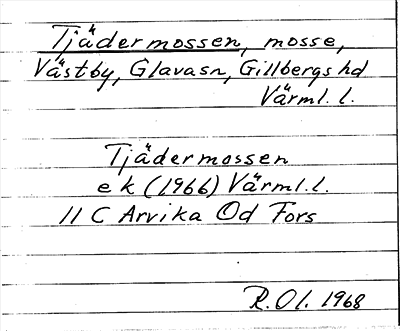 Tjädermossen, mosse,
Västby, Glavasn, Gillbergs hd
Värml. l.
Tjädermossen
e k (1966) Värml. l.
11 C Arvika Od Fors
R. Ol. 1968